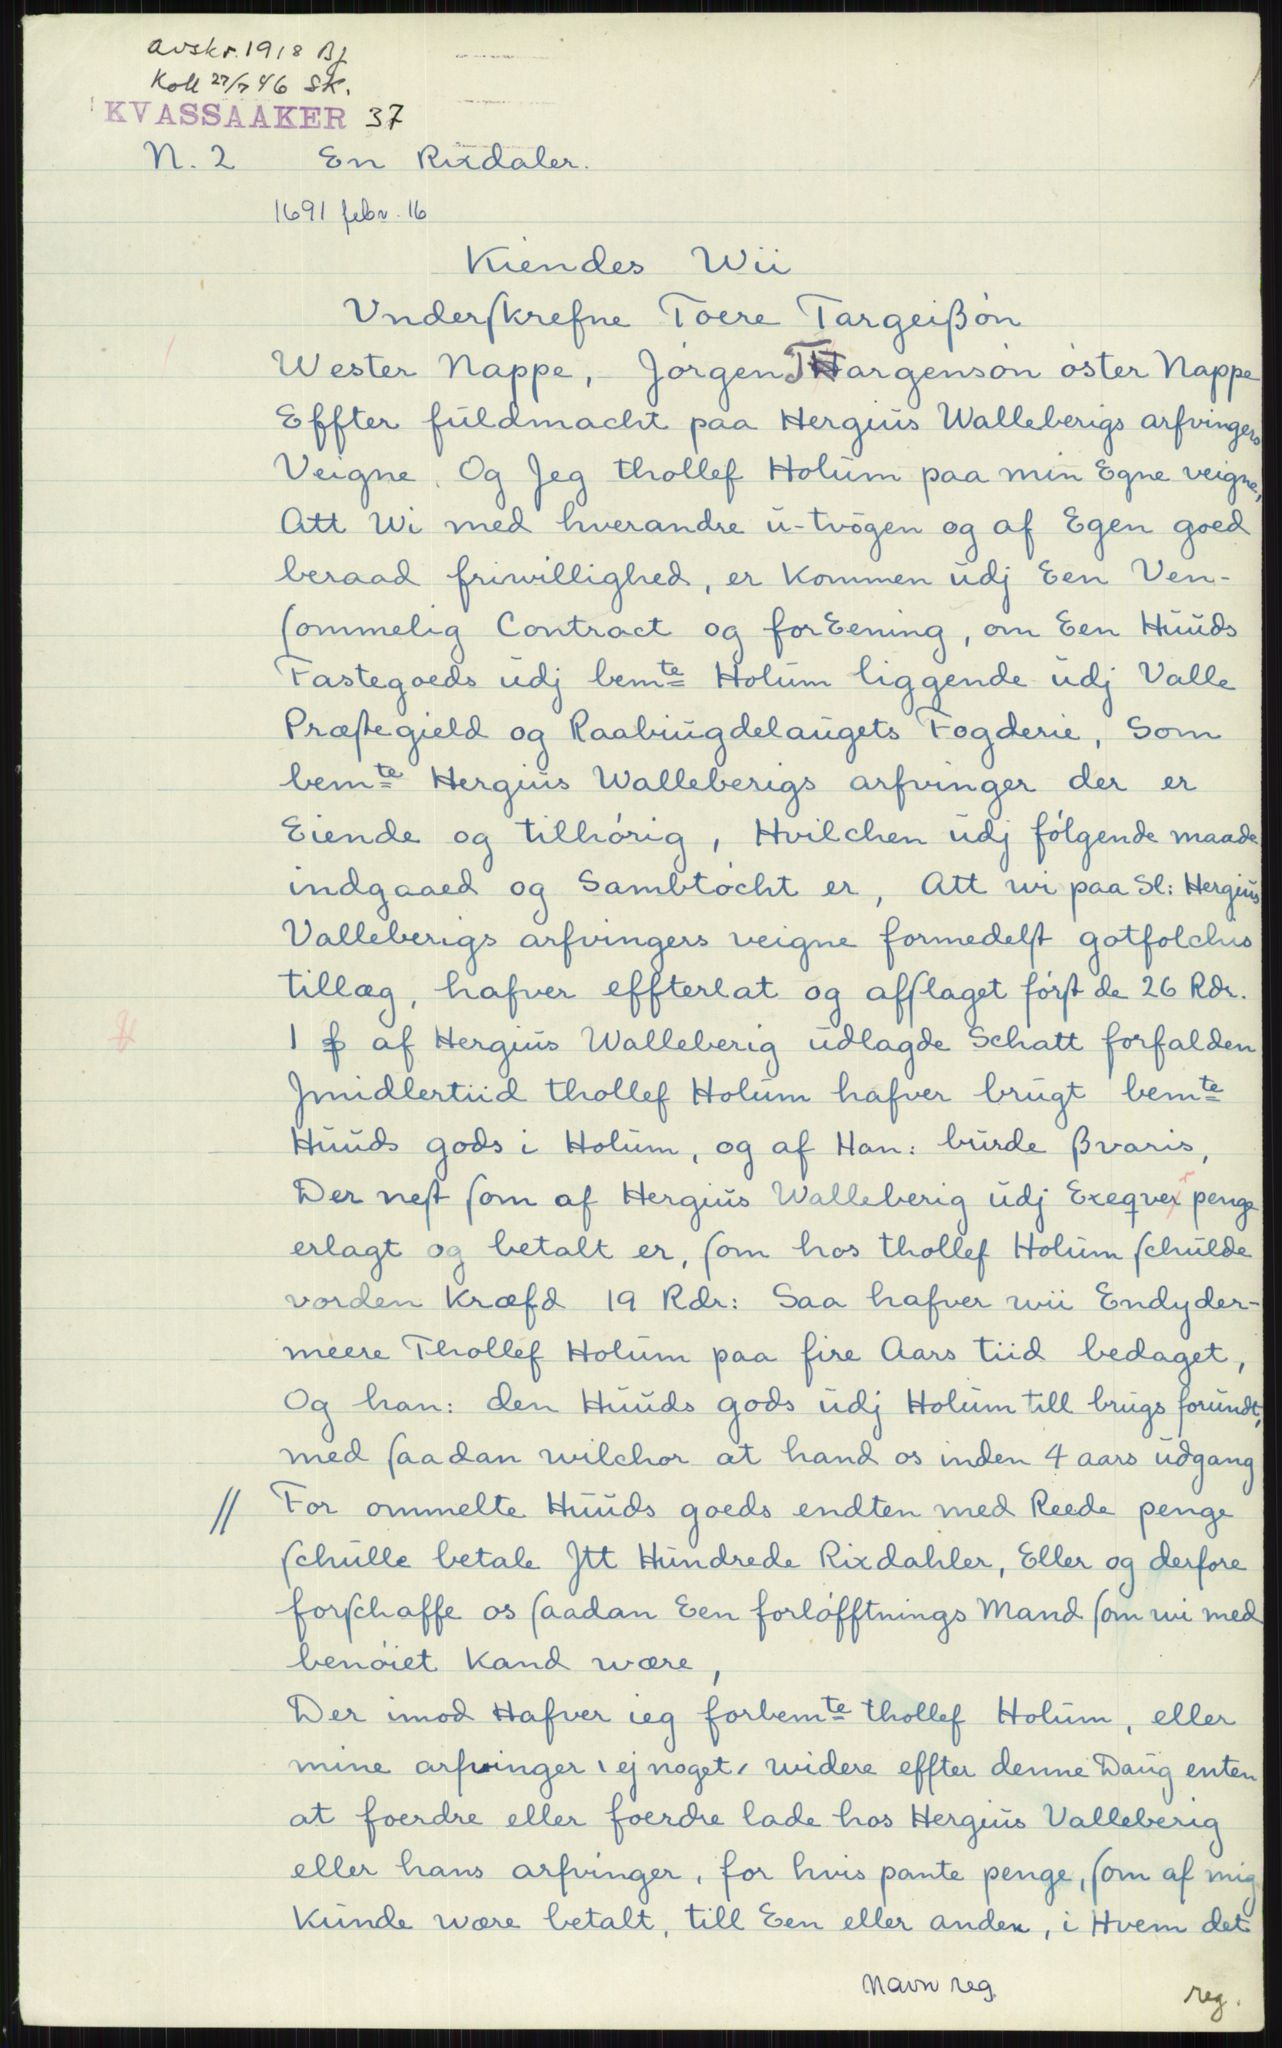 avskr. 1918 Bj
Koll 27/7 46 SK.
KVASSAAKER 37
N. 2 En Rixdaler.
1691 febr. 16
Kiendes Wii
Underſkrefne Toere Targeißön
Wester Nappe, Jörgen Targensön öster Nappe
Effter fuldmacht paa Hergius Walleberigs arfvingers
Veigne. Og Jeg thollef Holum paa min Egne veigne,
Att Wi med hverandre u-tvögen og af Egen goed
beraad friwillighed, er Kommen udj Een Ven-
ſommelig Contract og forEening, om Een Huuds
Fastegoeds udj bemte Holum liggende udj Valle
Præſtegield og Raabiugdelaugets Fogderie, Som
bemte Hergius Walleberigs arfvinger der er
Eiende og tilhörig, Hvilchen udj fölgende maade
indgaaed og Sambtöcht er, Att wi paa Sl: Hergius
Valleberigs arfvingers veigne formedelſt gotfolchis
tillæg, hafver effterlat og afſlaget förſt de 26 Rdr.
1 ꝑ af Hergius Walleberig udlagde Schatt forfalden
Jmidlertiid thollef Holum hafver brugt bemte
Huuds gods i Holum, og af Han: burde ßvaris,
Der neſt ſom af Hergius Walleberig udj Exeqver penge
erlagt og betalt er, ſom hos thollef Holum ſchulde
vorden Kræfd 19 Rdr: Saa hafver wii Endyder-
meere Thollef Holum paa fire Aars tiid bedaget,
Og han: den Huuds gods udj Holum till brugs forundt,
med ſaadan wilchor at hand os inden 4 aars udgang
// For ommelte Huuds goeds endten med Reede penge
ſchulle betale Jtt Hundrede Rixdahler, Eller og derfore
forſchaffe os ſaadan Een forlöfftnings Mand ſom wi med
benöiet Kand wære,
Der imod Hafver ieg forbemte thollef Holum, eller
mine arfvinger, ej noget, widere effter denne Daug enten
at foerdre eller foerdre lade hos Hergius Valleberig
eller hans arfvinger, for hvis pante penge, ſom af mig
Kunde wære betalt, till Een eller anden, i Hvem det
Navn reg.
reg.